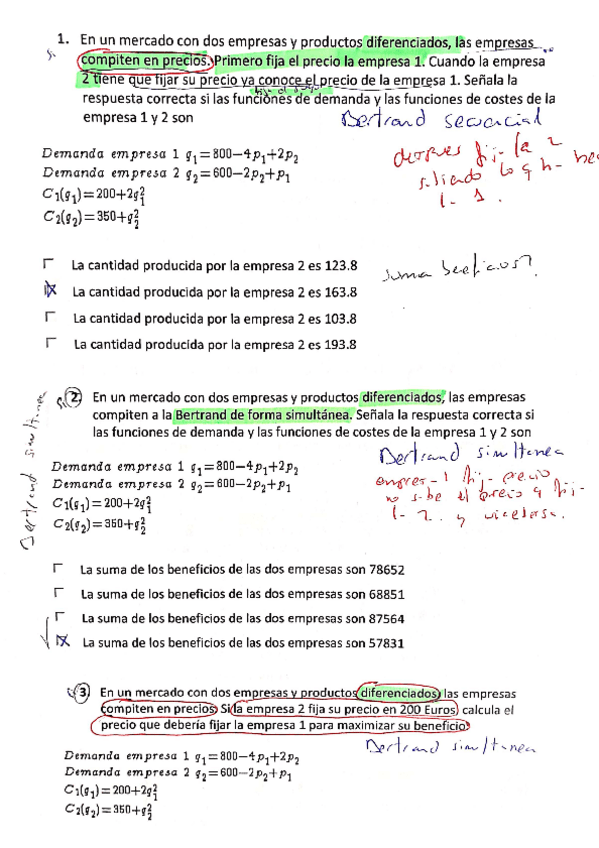 1. En un mercado con dos empresas y productos diferenciados, las empresas
compiten en precios. Primero fija el precio la empresa 1. Cuando la empresa
2 tiene que fijar su precio ya conoce el precio de la empresa 1. Señala la
respuesta correcta si las funciones de demanda y las funciones de costes de la
empresa 1 y 2 son
Bertrand secuencial
Demanda empresa 1 q₁=800−4p₁+2p₂
Demanda empresa 2 q₂=600−2p₂+p₁
C₁(q₁)=200+2q₁²
C₂(q₂)=350+q₂²
despues fija la 2
1.
La cantidad producida por la empresa 2 es 123.8
suma beneficios?
La cantidad producida por la empresa 2 es 163.8
La cantidad producida por la empresa 2 es 103.8
La cantidad producida por la empresa 2 es 193.8
2. En un mercado con dos empresas y productos diferenciados, las empresas
compiten a la Bertrand de forma simultánea. Señala la respuesta correcta si
las funciones de demanda y las funciones de costes de la empresa 1 y 2 son
Bertrand simultanea
Bertrand simultanea
Demanda empresa 1 q₁=800−4p₁+2p₂
Demanda empresa 2 q₂=600−2p₂+p₁
C₁(q₁)=200+2q₁²
C₂(q₂)=350+q₂²
empresa 1 fija precio
no sabe el precio q fija
la 2 y viceversa.
La suma de los beneficios de las dos empresas son 78652
La suma de los beneficios de las dos empresas son 68851
La suma de los beneficios de las dos empresas son 87564
La suma de los beneficios de las dos empresas son 57831
3 En un mercado con dos empresas y productos diferenciados las empresas
compiten en precios. Si la empresa 2 fija su precio en 200 Euros calcula el
precio que debería fijar la empresa 1 para maximizar su beneficio
Bertrand simultanea
Demanda empresa 1 q₁=800−4p₁+2p₂
Demanda empresa 2 q₂=600−2p₂+p₁
C₁(q₁)=200+2q₁²
C₂(q₂)=350+q₂²